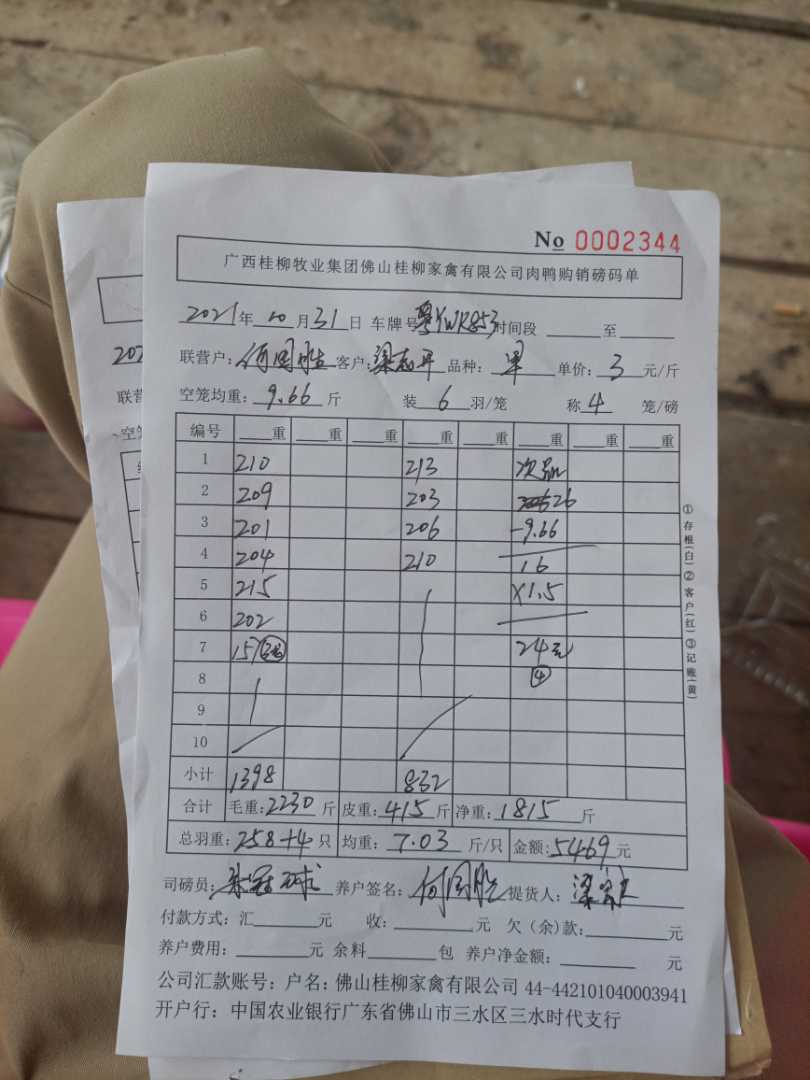 No 0002344
广西桂柳牧业集团佛山桂柳家禽有限公司肉鸭购销磅码单
2021年10月31日 车牌号粤YWR853时间段 至
联营户:何国胜 客户:梁志平 品种: 单价:3元/斤
空笼均重:9.66斤 装6羽/笼 称4笼/磅
编号 重 重 重 重 重 重 重 重
1 210 213 次品
2 209 203 26
3 201 206 -9.66
4 204 210 16
5 215 X1.5
6 202
7 157 24元
8 ④
9
10
小计 1398 832
合计 毛重:2230斤 皮重:415斤 净重:1815斤
总羽重:258+4只 均重:7.03斤/只 金额:5469元
司磅员: 养户签名:何国胜 提货人:
付款方式:汇 元 收: 元 欠(余)款: 元
养户费用: 元 余料 包 养户净金额: 元
公司汇款账号:户名:佛山桂柳家禽有限公司 44-442101040003941
开户行:中国农业银行广东省佛山市三水区三水时代支行
①存根(白)②客户(红)③记账(黄)
202
联营
空笼